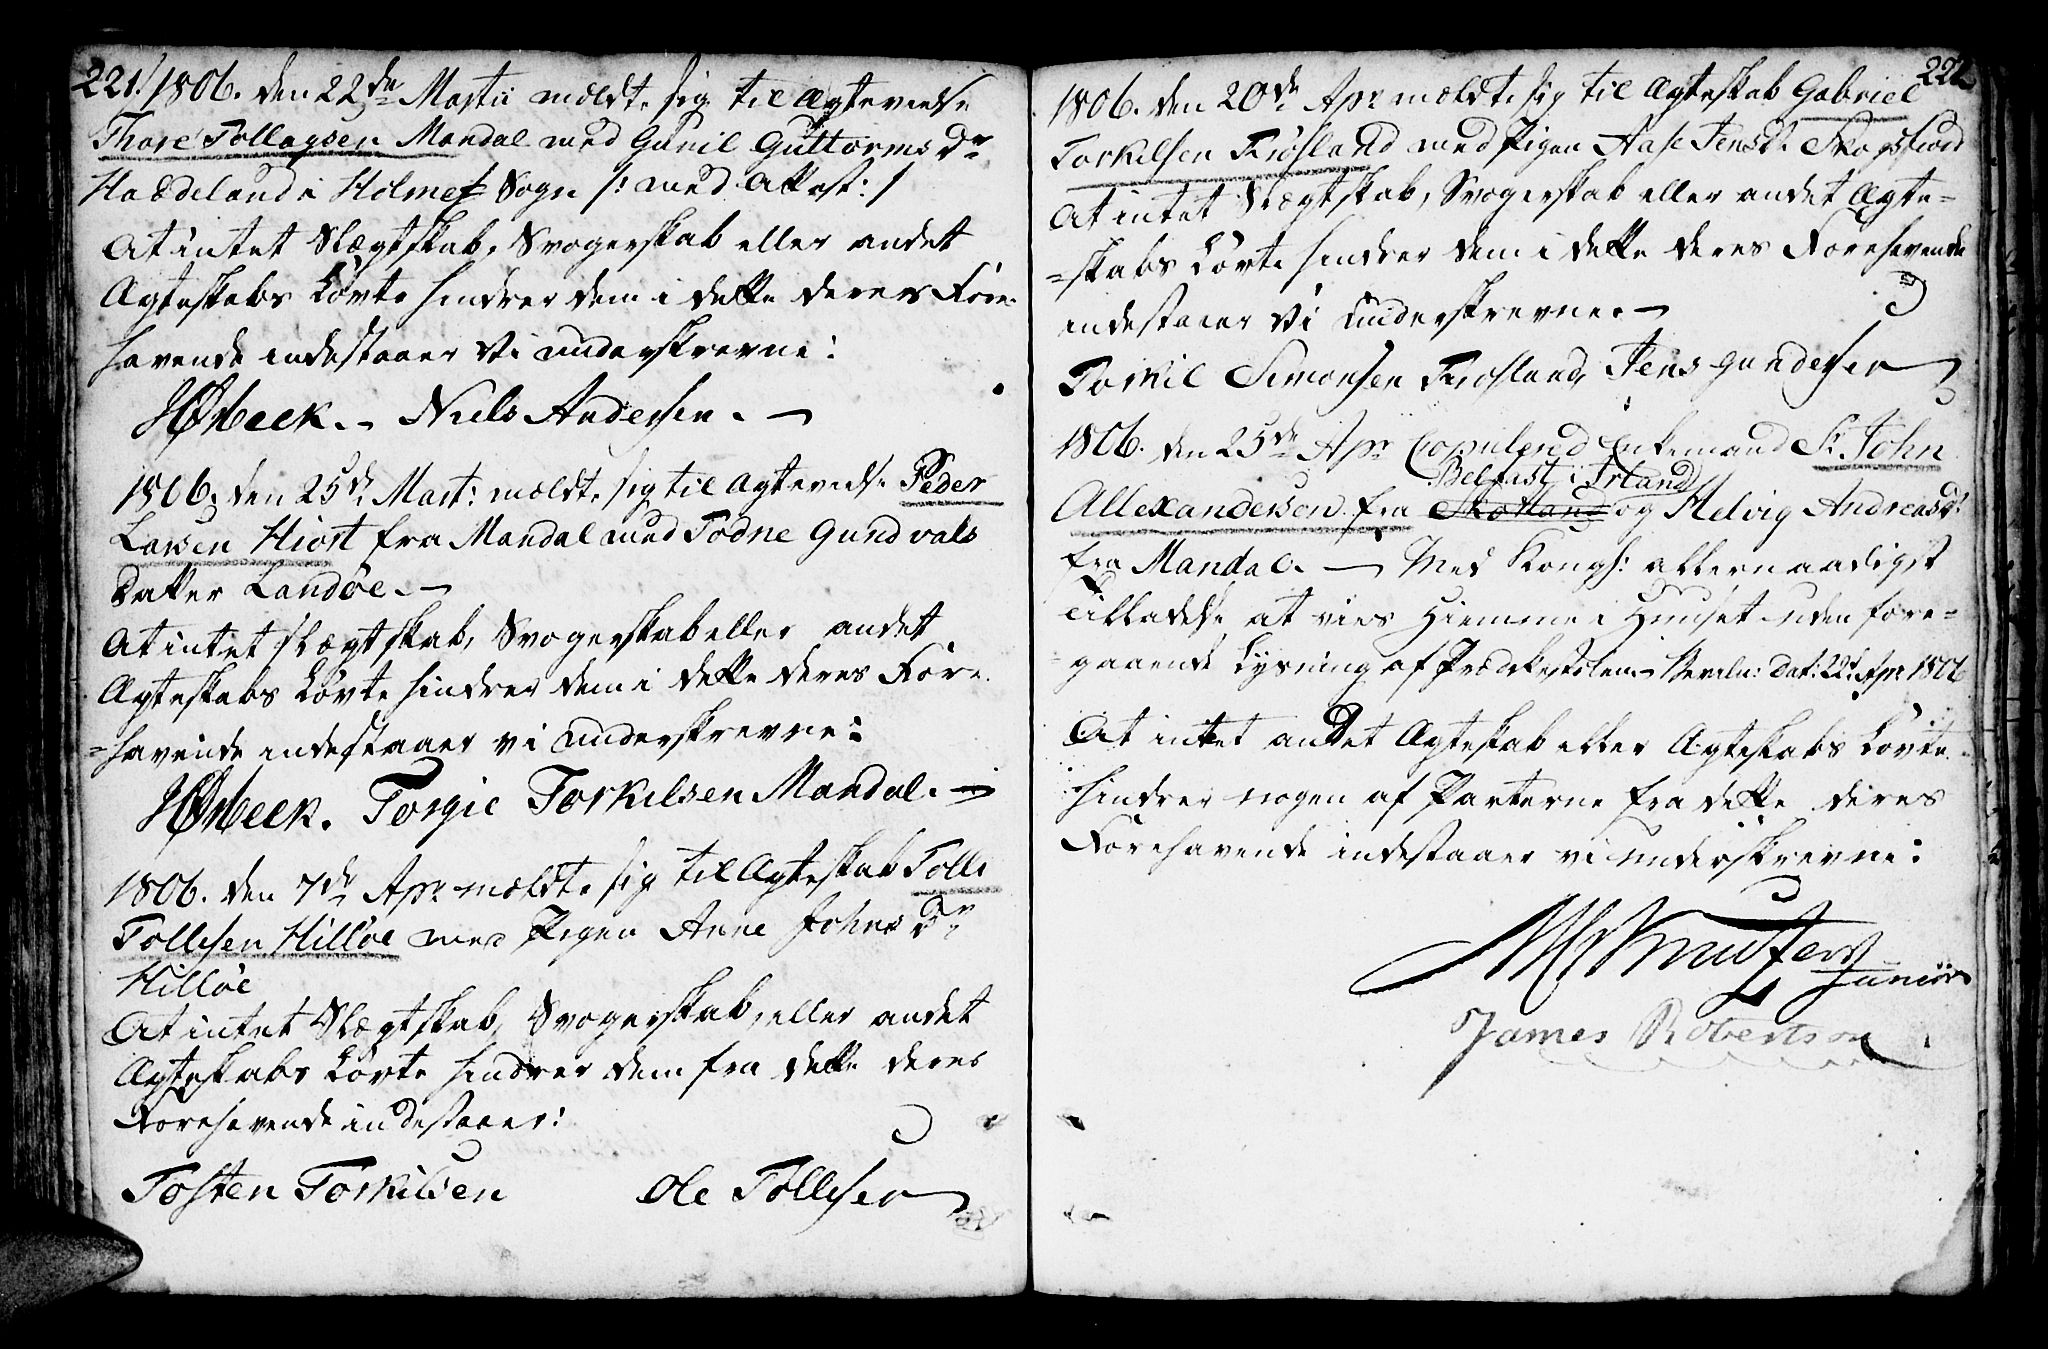 221. 1806. den 22de Martii meldte sig til Ægtevielse
Thore Tollagsen Mandal med Gunil Guttorms Dr
Haadeland i Holme Sogn /: med Attest: /
At intet Slægtskab, Svogerskab eller andet
Ægteskabs Løvte hindrer dem i dette deres Fore-
havende indestaaer Vi underskrevne:
HØrbeck. Niels Andersen.
1806. den 25de Mart: meldte sig til Ægtevielse Peder
Larsen Hiort fra Mandal med Todne Gundvals
Datter Landøe.
At intet Slægtskab, Svogerskab eller andet
Ægteskabs Løvte hindrer dem i dette deres Fore-
=havende indestaaer vi underskrevne:
HØrbeck. Torgie Torkilsen Mandal.
1806. den 7de Apr meldte sig til Ægteskab Tolle
Tollesen Hilløe med Pigen Anne Johns Dr
Hilløe
At intet Slægtskab, Svogerskab, eller andet
Ægteskabs Løvte hindrer dem fra dette deres
Forehavende indestaaer:
Tosten Torkilsen Ole Tollesen
222
1806. den 20de Apr meldte sig til Ægteskab Gabriel
Torkilsen Frøsland med Pigen Aase Jensdr Skogsfiord
At intet Slægtskab, Svogerskab eller andet Ægte-
=skabs Løvte hindrer dem i dette deres Forehavende
indestaaer Vi underskrevne.
Torkil Simonsen Frøsland, Jens Gundersen
1806. den 25de Apr Copulerd Enkemand Sr. John
Belfast i Irland
Allexanderson fra Skotland og Helvig Andreasdr
fra Mandal. Med Kongl: allernaadigst
Tilladelse at vies Hiemme i Huuset uden fore-
gaaende Lysning af Prædikestolen. Beviln: dat: 22d Apr 1806
At intet andet Ægteskab eller Ægteskabs Løvte
hindrer nogen af Parterne fra dette deres
Forehavende indestaaer vi underskrevne:
Knutzen
Junior
James Robertson